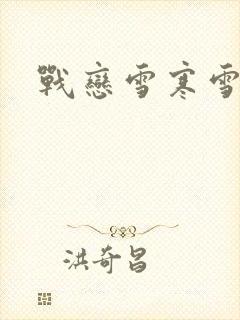 戰戀雪寒雪
洪奇昌